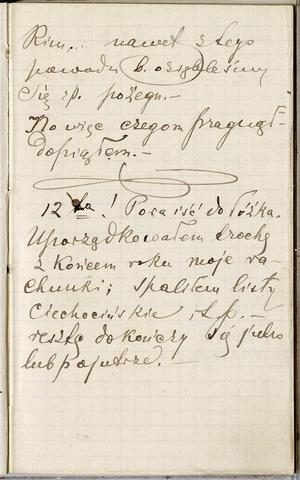 Rzuc... nawet z tego
powodu b. oziębliśmy
się i p. pożegn.—
No więc czegom pragnął—
dopiąłem.—
12ta! Pora iść do łóżka.
Uporządkowałem trochę
z końcem roku moje ra-
chunki; spaliłem listy
Ciechocińskie i t. p.—
resztę dokończy się jutro
lub pojutrze.—